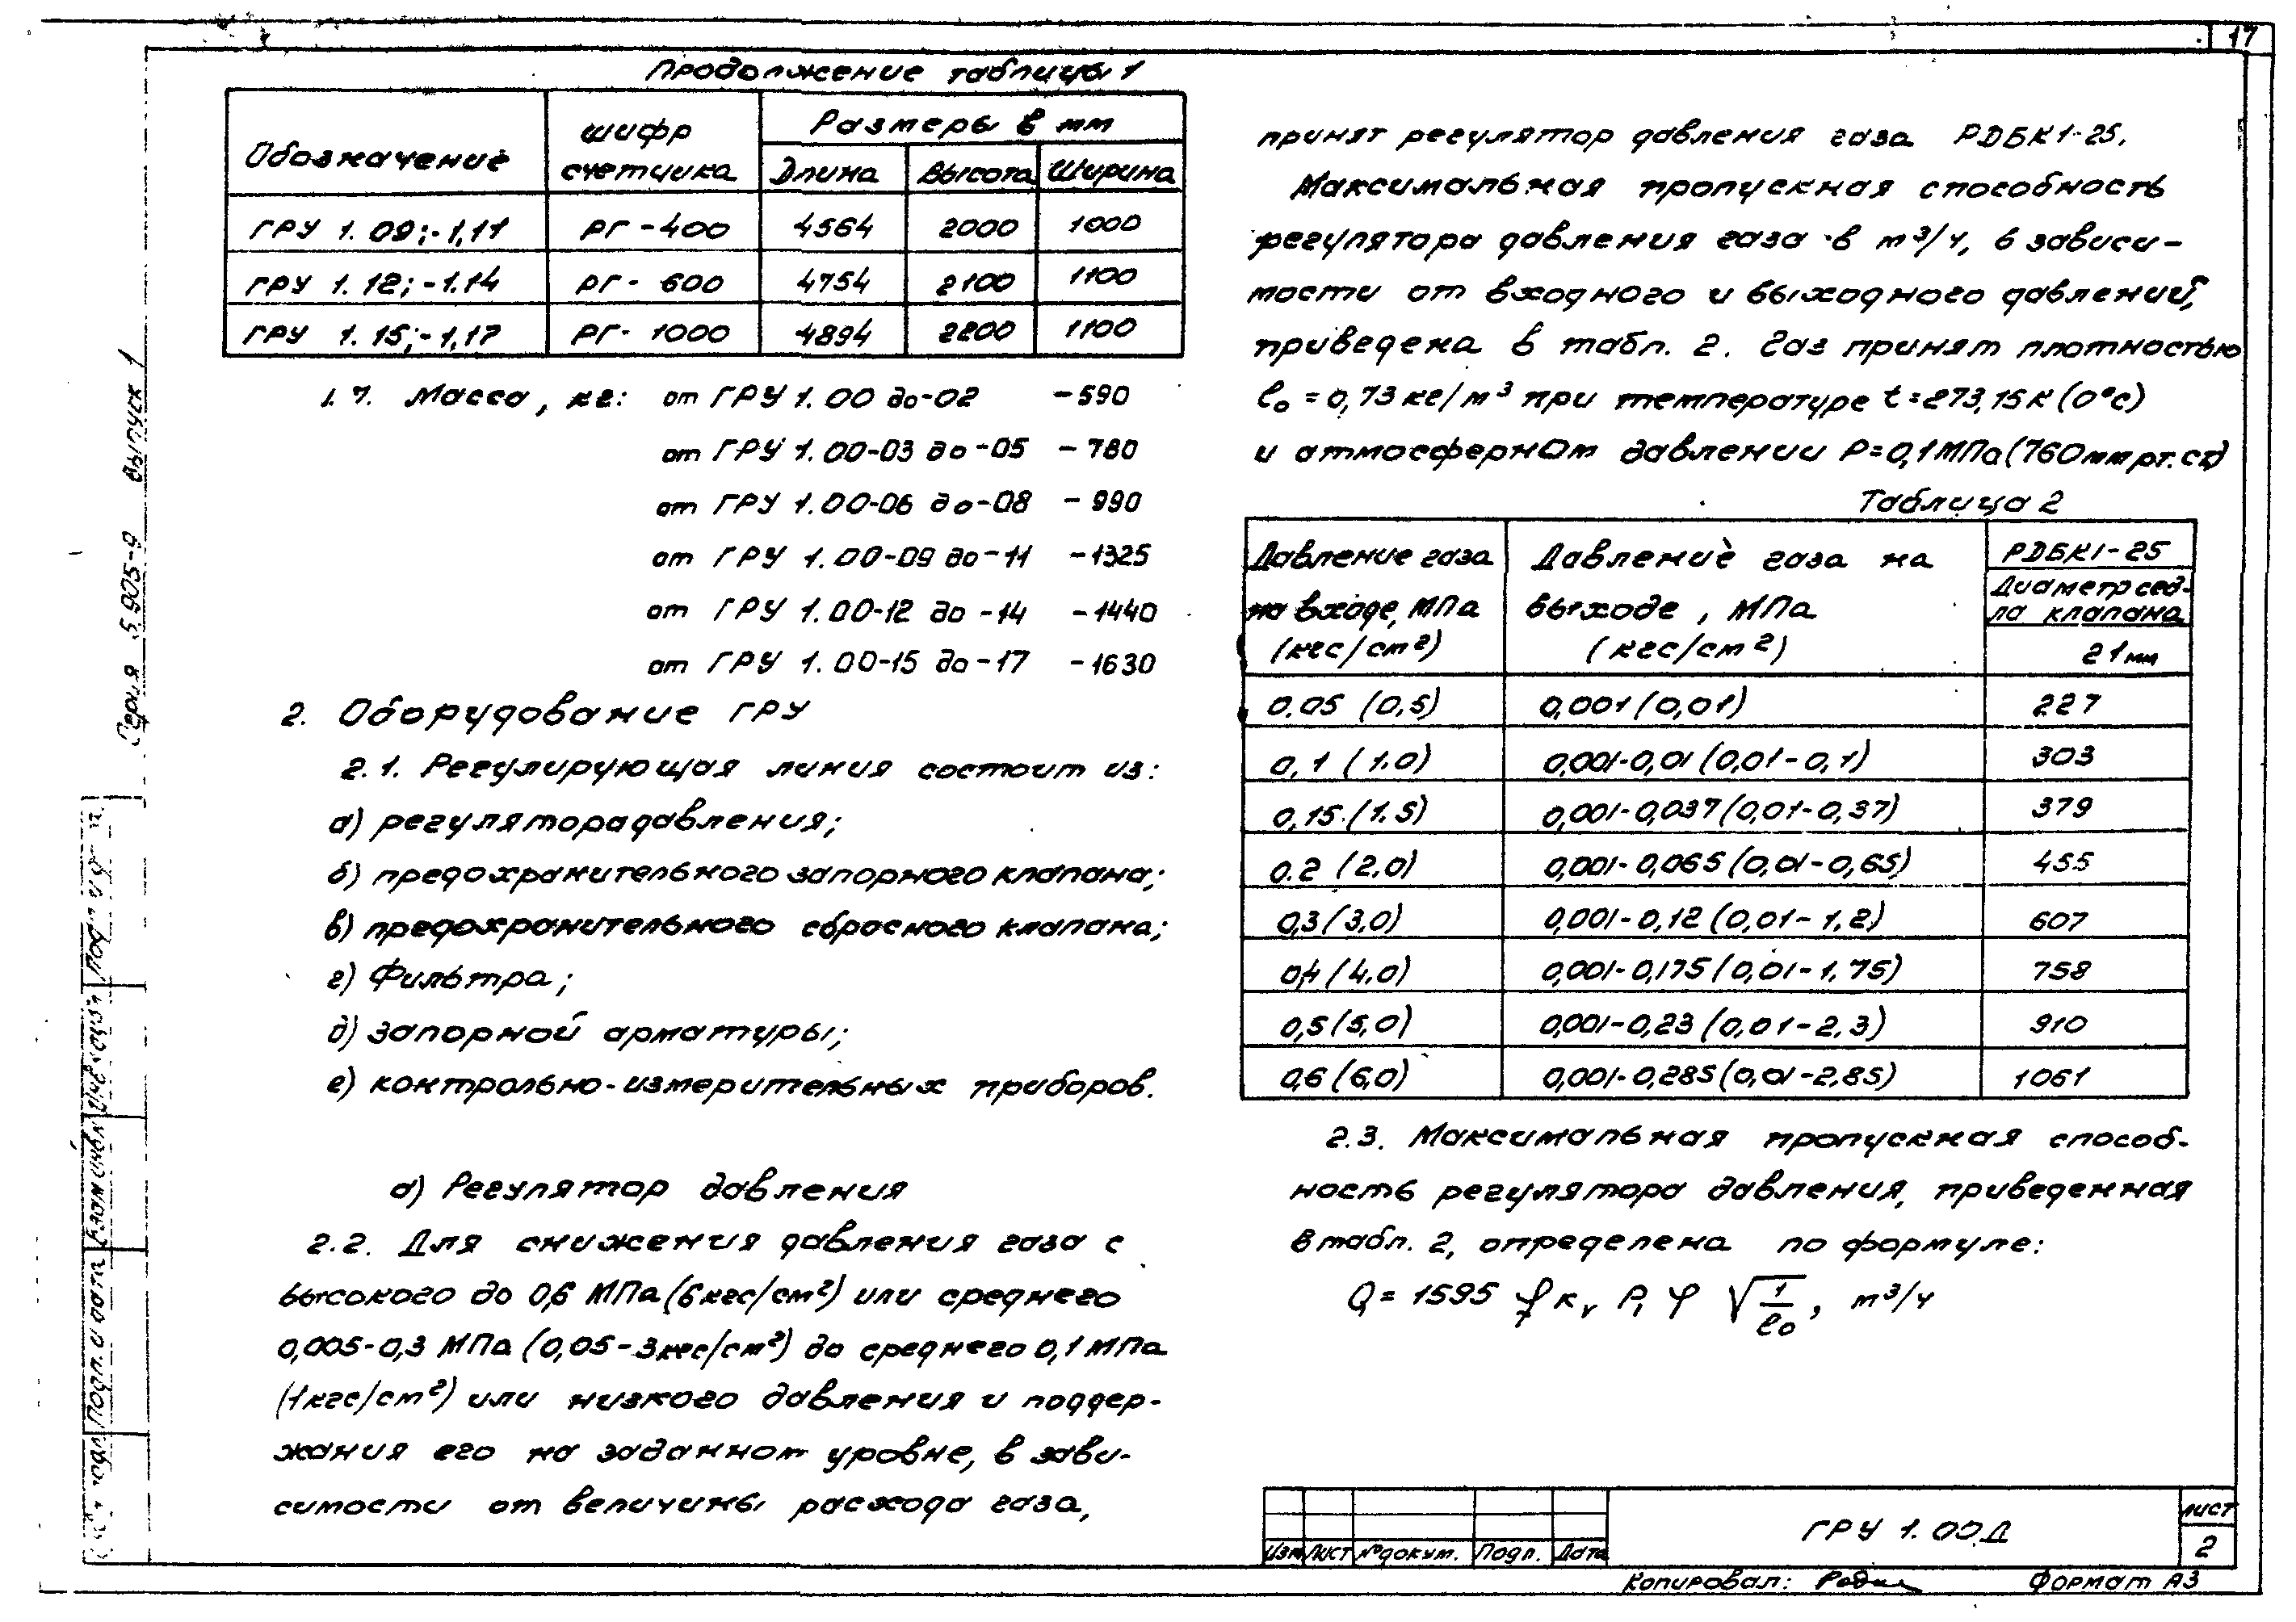 17
Продолжение таблицы 1
Обозначение | шифр счетчика | Размеры в мм
Длина | Высота | Ширина
ГРУ 1.09;-1,11 | РГ-400 | 4564 | 2000 | 1000
ГРУ 1.12;-1.14 | РГ-600 | 4754 | 2100 | 1100
ГРУ 1.15;-1,17 | РГ-1000 | 4894 | 2200 | 1100
1.7. Масса, кг: от ГРУ 1.00 до-02 -590
от ГРУ 1.00-03 до-05 -780
от ГРУ 1.00-06 до-08 -990
от ГРУ 1.00-09 до-11 -1325
от ГРУ 1.00-12 до-14 -1440
от ГРУ 1.00-15 до-17 -1630
2. Оборудование ГРУ
2.1. Регулирующая линия состоит из:
а) регулятора давления;
б) предохранительного запорного клапана;
в) предохранительного сбросного клапана;
г) Фильтра;
д) запорной арматуры;
е) контрольно-измерительных приборов.
а) Регулятор давления
2.2. Для снижения давления газа с
высокого до 0,6 МПа (6кгс/см²) или среднего
0,005-0,3 МПа (0,05-3кгс/см²) до среднего 0,1 МПа
(1кгс/см²) или низкого давления и поддер-
жания его на заданном уровне, в зави-
симости от величины расхода газа,
принят регулятор давления газа РДБК1-25.
Максимальная пропускная способность
регулятора давления газа в м³/ч, в зависи-
мости от входного и выходного давлений,
приведена в табл. 2. Газ принят плотностью
ρ₀ = 0,73 кг/м³ при температуре t=273,15К (0°С)
и атмосферном давлении Р=0,1МПа (760мм рт.ст)
Таблица 2
Давление газа на входе, МПа (кгс/см²) | Давление газа на выходе, МПа (кгс/см²) | РДБК1-25
Диаметр сед-
ла клапана
21мм
0.05 (0,5) | 0,001 (0,01) | 227
0,1 (1.0) | 0,001-0,01 (0,01-0,1) | 303
0,15 (1.5) | 0,001-0,037 (0,01-0,37) | 379
0.2 (2,0) | 0,001-0,065 (0,01-0,65) | 455
0,3 (3,0) | 0,001-0,12 (0,01-1,2) | 607
0,4 (4,0) | 0,001-0,175 (0,01-1,75) | 758
0,5 (5,0) | 0,001-0,23 (0,01-2,3) | 910
0,6 (6,0) | 0,001-0,285 (0,01-2,85) | 1061
2.3. Максимальная пропускная способ-
ность регулятора давления, приведенная
в табл. 2, определена по формуле:
Q = 1595 φ Kv P₁ φ √(1/ρ₀), м³/ч
Изм Лист №докум. Подп. Дата
ГРУ 1.00Д
лист
2
Копировал: Формат А3
Серия 5.905-9 выпуск 1
Подп. и дата
Взам инв.